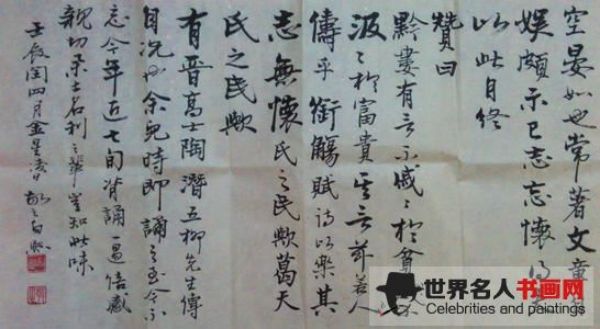 空晏如也常著文章
娱頗示己志忘懷得
以此自終
贊曰
黔婁有言不戚〻於貧
汲〻於富貴其言茲若人
儔乎銜觴賦詩以樂其
志無懷氏之民歟葛天
氏之民歟
有晉高士陶潛五柳先生傳
自況也余兒時即誦之至今不
忘今年近七旬背誦一過倍感
親切 士名利之輩豈知此味
壬辰閏四月金星凌
世界名人书画网
Celebrities and paintings